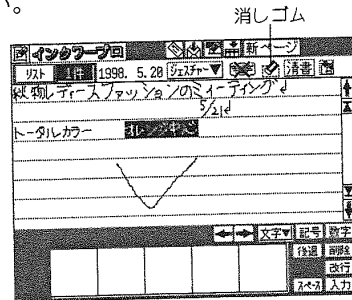 い。
消しゴム
インクワープロ 新ページ
リスト 1件 1998. 5.20 ジェスチャー▼ 清書
秋物レディースファッションのミーティング
5/21
トータルカラー オレンジ
文字▼ 記号 数字
後退 削除
改行
スペース 入力